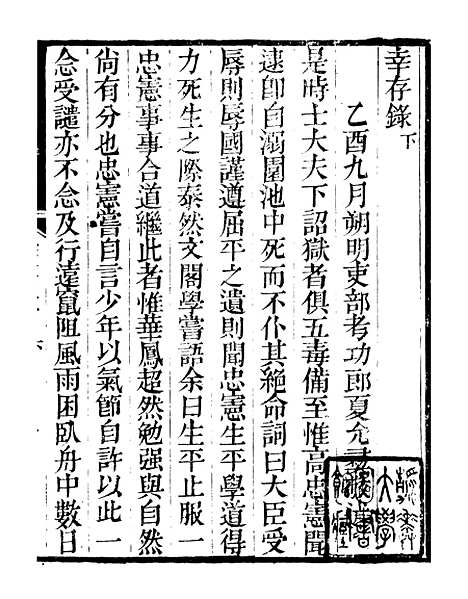 幸存錄下
乙酉九月朔明吏部考功郎夏允
是時士大夫下詔獄者俱五毒備至惟高忠憲聞
逮即自溺園池中死而不仆其絶命詞曰大臣受
辱則辱國謹遵屈平之遺則聞忠憲生平學道得
力死生之際泰然文閣學嘗語余曰生平止服一
忠憲事事合道繼此者惟華鳳超然勉强與自然
尙有分也忠憲嘗自言少年以氣節自許以此一
念受譴亦不念及行遠竄阻風雨困臥舟中數日